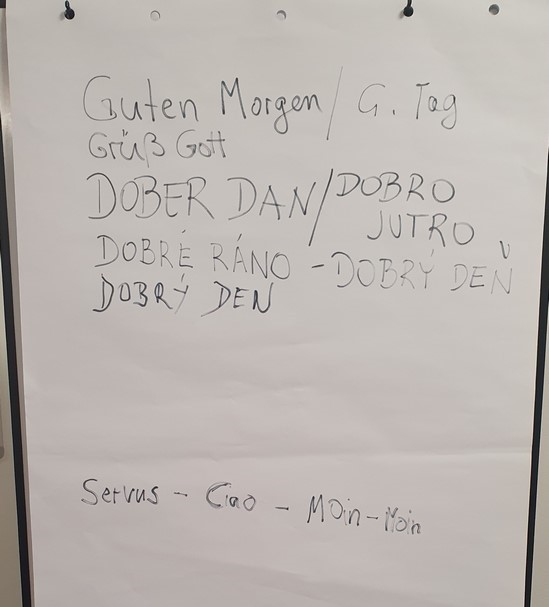 Guten Morgen / G. Tag
Grüß Gott
DOBER DAN / DOBRO
JUTRO
DOBRÉ RÁNO - DOBRÝ DEŇ
DOBRÝ DEN
Servus - Ciao - MOin - Moin